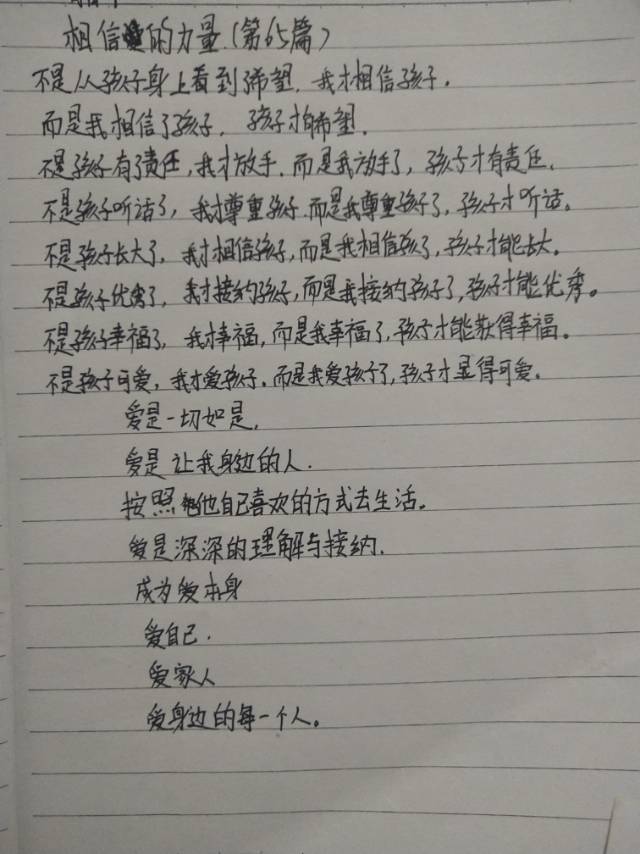 相信的力量(第65篇)
不是从孩子身上看到希望,我才相信孩子.
而是我相信了孩子,孩子才有希望.
不是孩子有了责任,我才放手.而是我放手了,孩子才有责任.
不是孩子听话了,我才尊重孩子.而是我尊重孩子了,孩子才听话。
不是孩子长大了,我才相信孩子,而是我相信孩子了,孩子才能长大。
不是孩子优秀了,我才接纳孩子,而是我接纳孩子了,孩子才能优秀。
不是孩子幸福了,我才幸福,而是我幸福了,孩子才能获得幸福。
不是孩子可爱,我才爱孩子.而是我爱孩子了,孩子才显得可爱。
爱是一切如是,
爱是让我身边的人.
按照他自己喜欢的方式去生活。
爱是深深的理解与接纳.
成为爱本身
爱自己.
爱家人
爱身边的每一个人。